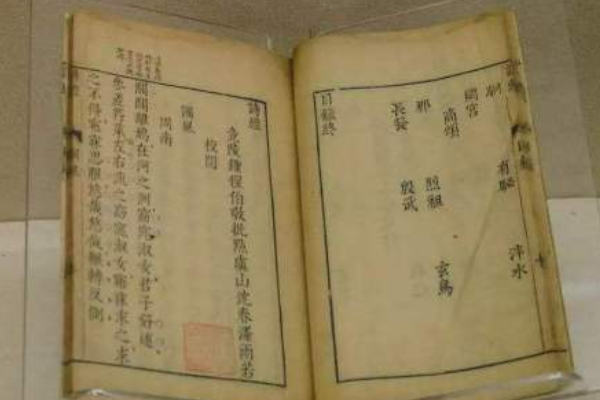 駉 有駜 泮水
閟宮
商頌
那 烈祖 玄鳥
長發 殷武
目錄終
詩經
竟陵鍾惺伯敬批點虞山沈春澤雨若
校閱
國風
周南
關關雎鳩在河之洲窈窕淑女君子好逑
參差荇菜左右流之窈窕淑女寤寐求之求
之不得寤寐思服悠哉悠哉輾轉反側